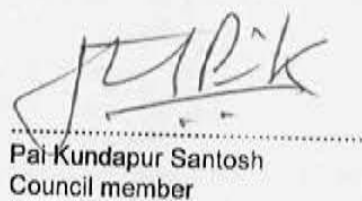 Pai Kundapur Santosh
Council member